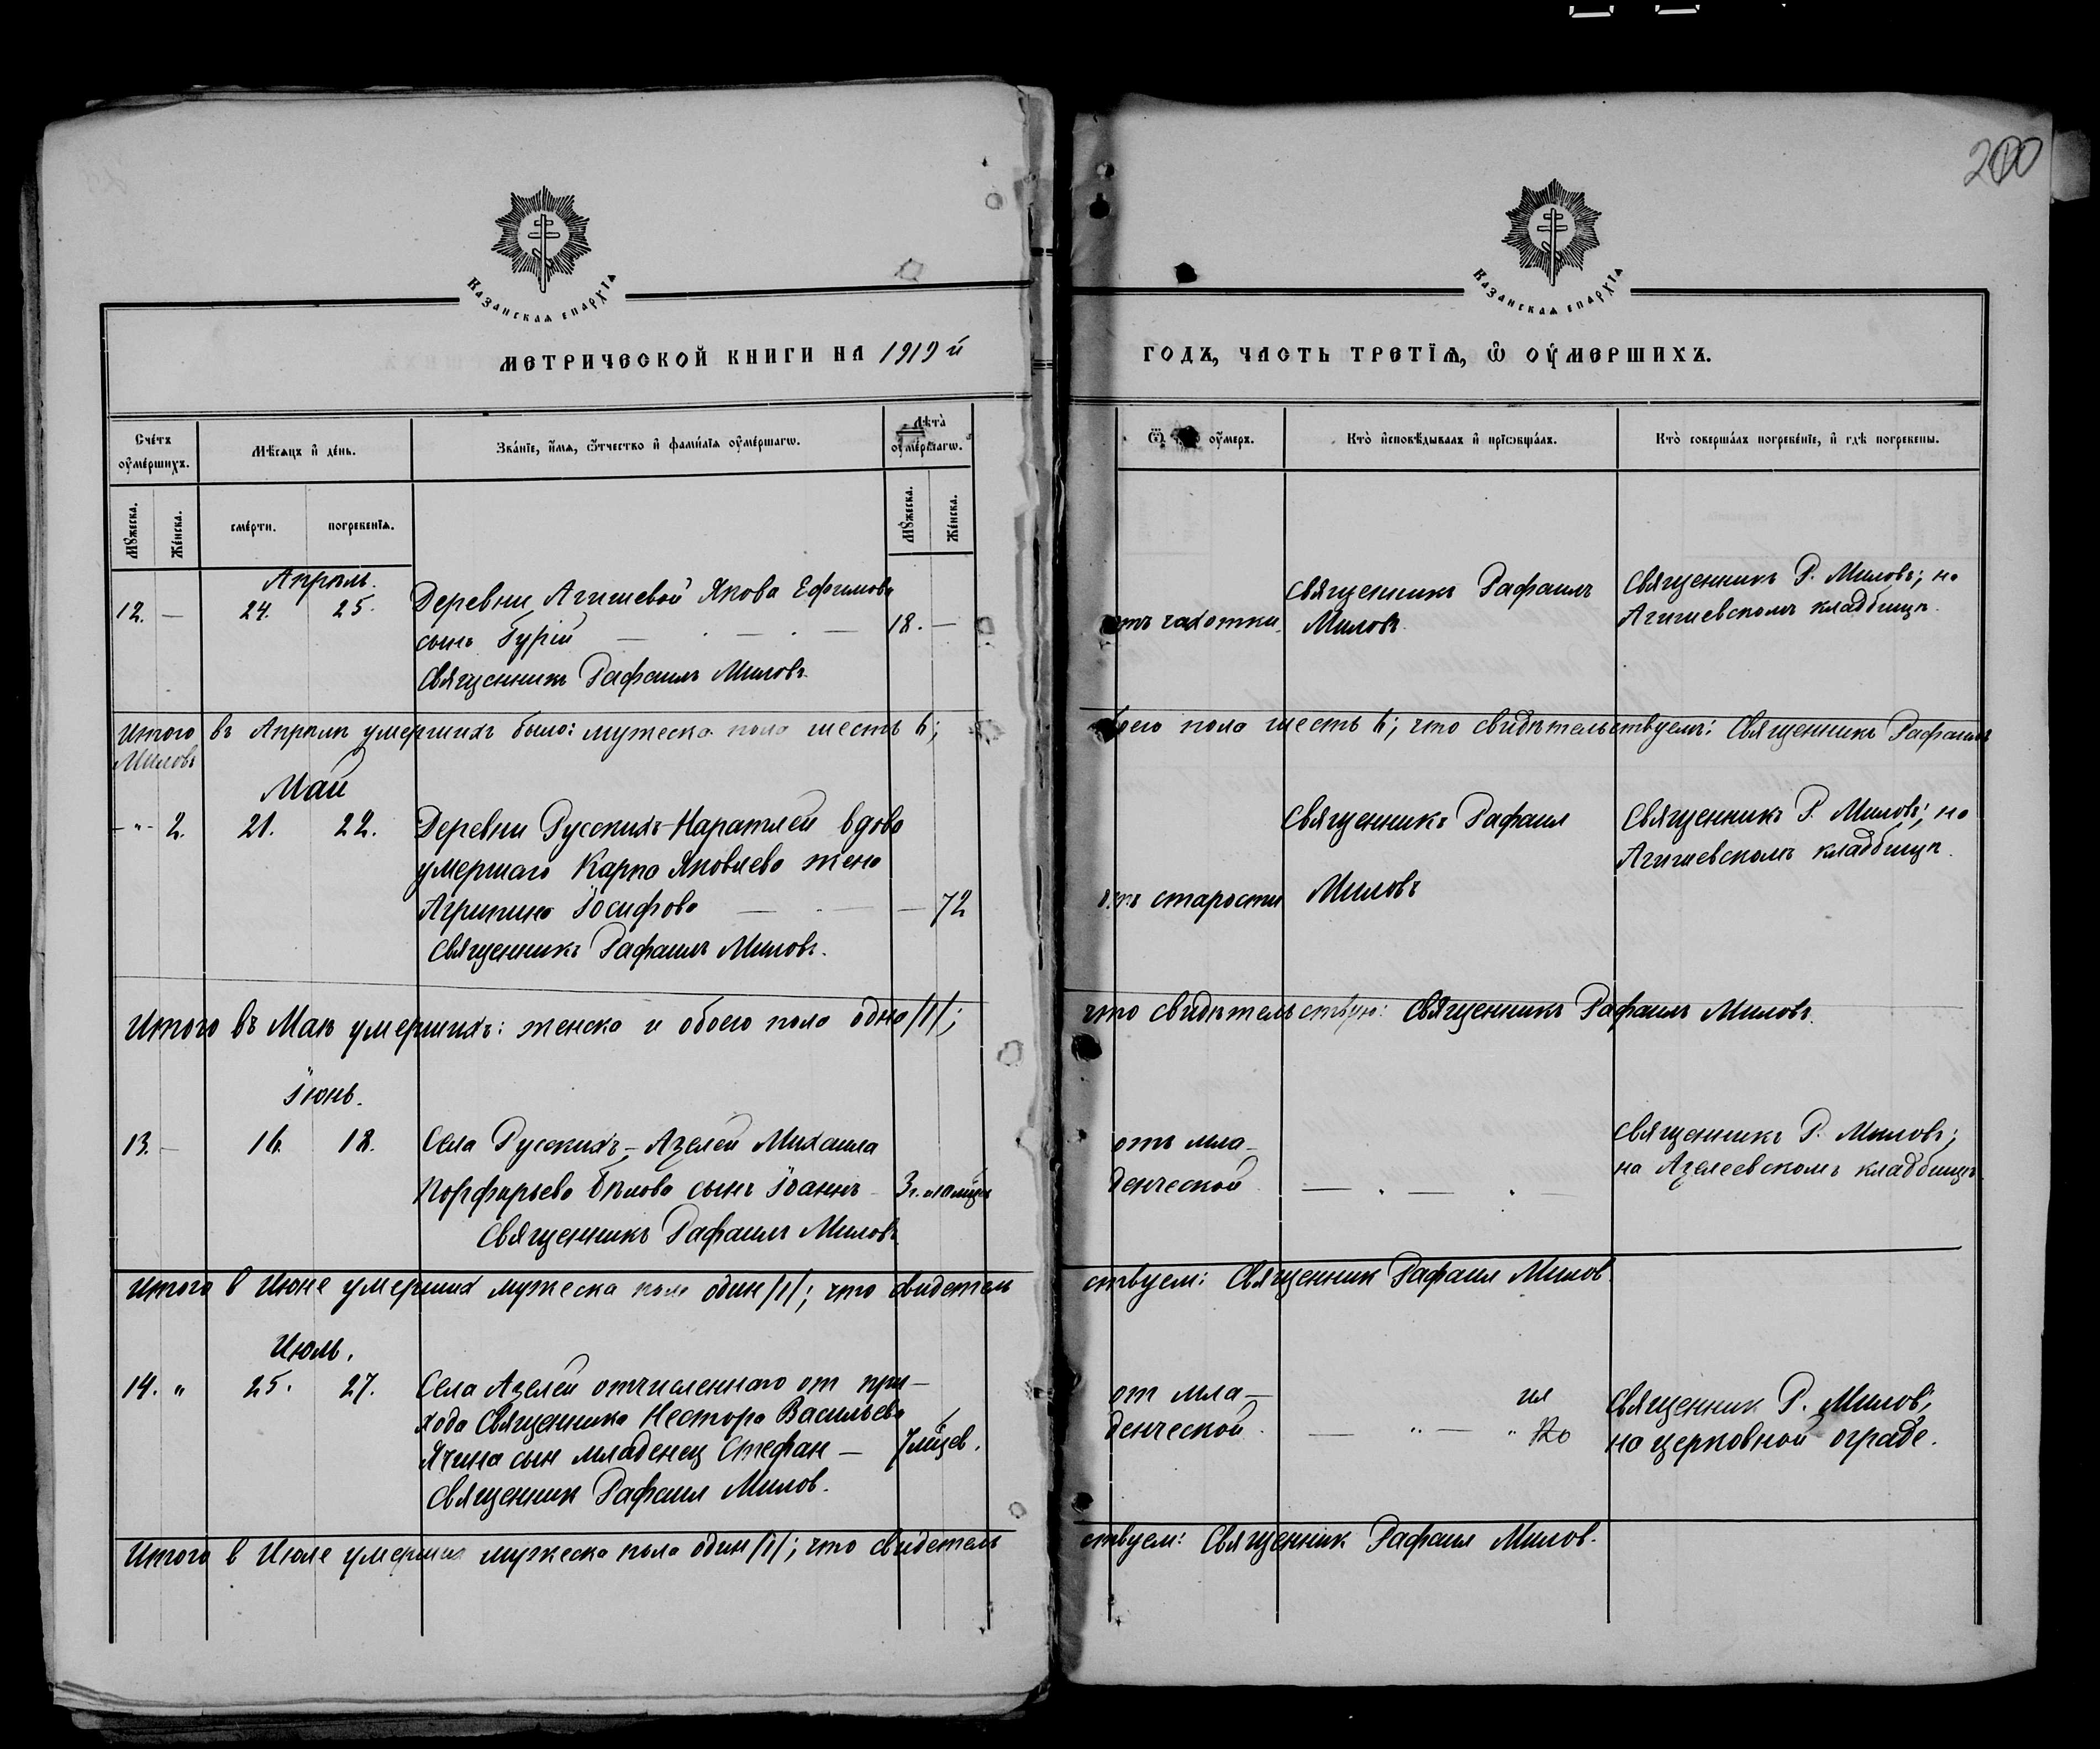 200
Казанскаѧ епархїѧ
Казанскаѧ епархїѧ
МЕТРИЧЕСКОЙ КНИГИ НА 1919 й
ГОДЪ, ЧАСТЬ ТРЕТЇѦ, Ѽ ОУ҆МЕРШИХЪ.
Сче́тъ оу҆ме́ршихъ.
Мѣ́сѧцъ и҆ де́нь.
Зва́нїе, и҆́мѧ, ѻ҆́тчество и҆ фами́лїѧ оу҆ме́ршагѡ.
Лѣта̀ оу҆ме́ршагѡ.
Ѿ оу҆́меръ.
Кто̀ и҆сповѣ́дывалъ и҆ прїѡбща́лъ.
Кто̀ соверша́лъ погребе́нїе, и҆ гдѣ̀ погребены.
Мꙋ́жеска.
Же́нска.
сме́рти.
погребе́нїѧ.
Мꙋ́жеска.
Же́нска.
Апрѣль.
12. — 24. 25. Деревни Агишевой Якова Ефимова
сынъ Гурій — . — . — 18. —
Священникъ Рафаилъ Миловъ.
отъ чахотки.
Священникъ Рафаилъ
Миловъ.
Священникъ Р. Миловъ; на
Агишевскомъ кладбищѣ.
Итого въ Апрѣлѣ умершихъ было: мужеска пола шесть 6; обоего пола шесть 6; что свидѣтельствуемъ: Священникъ Рафаилъ
Миловъ
Май
-"- 2. 21. 22. Деревни Русскихъ-Наратлей вдова
умершаго Карпа Яковлева жена
Агрипина Іосифова — . — — 72
Священникъ Рафаилъ Миловъ.
отъ старости
Священникъ Рафаил
Миловъ
Священникъ Р. Миловъ; на
Агишевскомъ кладбищѣ.
Итого въ Маѣ умершихъ: женска и обоего пола одна /1/; что свидѣтельствую: Священникъ Рафаилъ Миловъ.
Іюнь.
13. — 16. 18. Села Русскихъ-Азелей Михаила
Порфирьева Бѣлова сынъ Іоаннъ 3 г.
Священникъ Рафаилъ Миловъ.
отъ мла-
денческой — . — . —
Священникъ Р. Миловъ;
на Азелеевскомъ кладбищѣ.
Итого в Июне умерших мужеска пола один /1/; что свидетель
ствуем: Священник Рафаил Милов.
Июль.
14. " 25. 27. Села Азелей отчисленнаго от при-
хода Священника Нестора Васильева
Ячина сын младенец Стефан — 7 м҃цев.
Священник Рафаил Милов.
от мла-
денческой. — " — "
Священник Р. Милов;
на церковной ограде.
Итого в Июле умерших мужеска пола один /1/; что свидетель
ствуем: Священник Рафаил Милов.